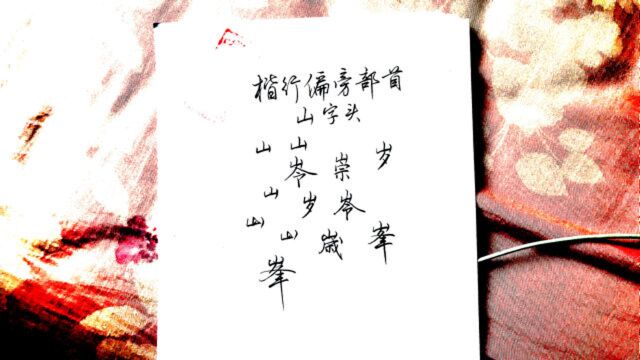 楷行偏旁部首
山字头
山 山
岑 崇 岁
山 岁 岑
山 山 嵗 峯
峯